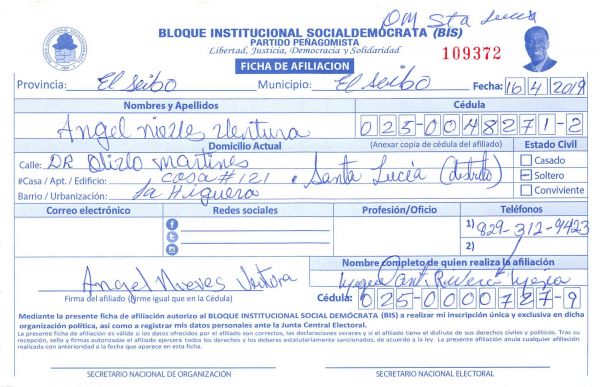 DM Sta Lucia
BLOQUE INSTITUCIONAL SOCIALDEMÓCRATA (BIS)
PARTIDO PEÑAGOMISTA
Libertad, Justicia, Democracia y Solidaridad
109372
FICHA DE AFILIACION
Provincia: El Seibo Municipio: El Seibo Fecha: 16/4/2019
Nombres y Apellidos Cédula
Angel nieves Ventura 025-0048271-2
Domicilio Actual (Anexar copia de cédula del afiliado) Estado Civil
Calle: DR Martines Casado
#Casa / Apt. / Edificio: casa #121 Santa Lucía (distrito) Soltero
Barrio / Urbanización: la Higuera Conviviente
Correo electrónico Redes sociales Profesión/Oficio Teléfonos
1) 829-312-9423
2)
Nombre completo de quien realiza la afiliación
Angel Nieves Ventura Rivera
Firma del afiliado (Firme igual que en la Cédula) Cédula: 025-0000727-9
Mediante la presente ficha de afiliación autorizo al BLOQUE INSTITUCIONAL SOCIAL DEMÓCRATA (BIS) a realizar mi inscripción única y exclusiva en dicha
organización política, así como a registrar mis datos personales ante la Junta Central Electoral.
La presente ficha de afiliación es válida si los datos ofrecidos por el afiliado son correctos, las declaraciones veraces y si el afiliado tiene el disfrute de sus derechos civiles y políticos. Tras su
recepción, sello y firmas autorizadas el afiliado ejercerá todos los derechos y los deberes estatutariamente sancionados, de acuerdo a la ley. La presente afiliación anula cualquier afiliación
realizada con anterioridad a la fecha que aparece en esta ficha.
SECRETARIO NACIONAL DE ORGANIZACIÓN SECRETARIO NACIONAL ELECTORAL